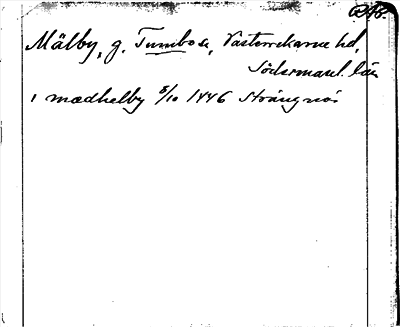 Mälby, g. Tumbo sn, Västerrekarne hd,
Södermanl. län
i mædhelby 8/10 1446 Strängnäs